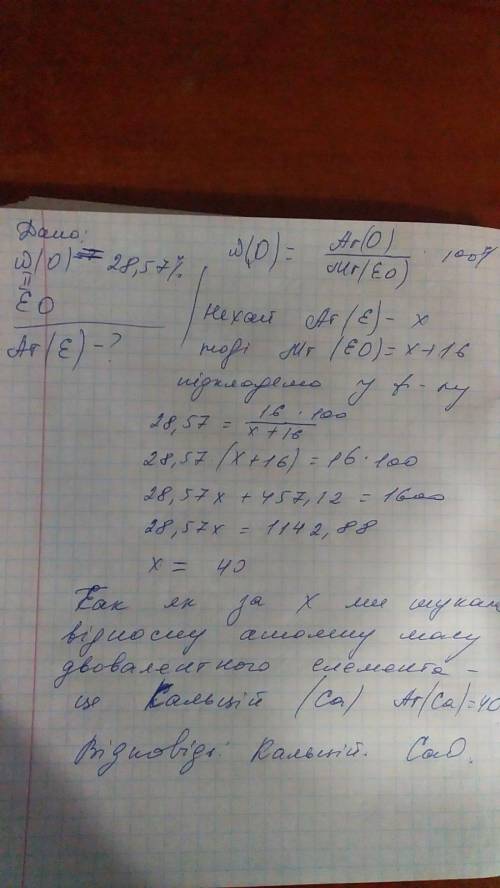 Дано:
D(O) = 28,57%
II
EO
Ar(E) - ?
D(O) = Ar(O) / Mr(EO) · 100%
Нехай Ar(E) - x
тоді Mr(EO) = x + 16
підкладемо у ф-лу
28,57 = 16 · 100 / x + 16
28,57 (x + 16) = 16 · 100
28,57x + 457,12 = 1600
28,57x = 1142,88
x = 40
Так як за x ми шукал
відносну атомну масу
двовалентного елемента -
це Кальцій (Ca) Ar(Ca)=40
Відповіді: Кальцій. CaO.